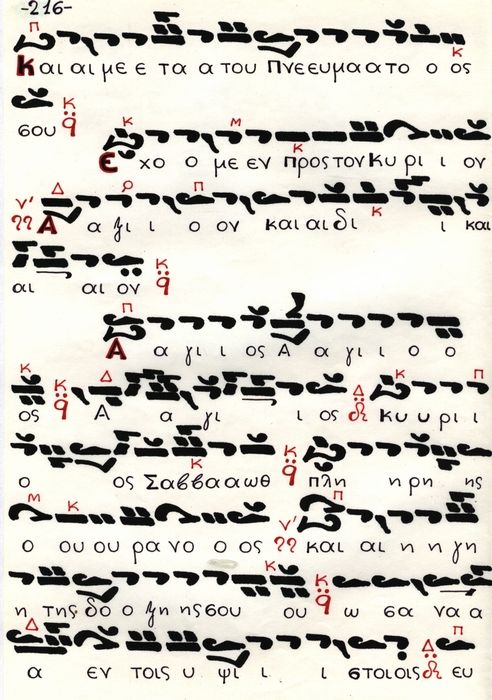 -216-
Και αι με ε τα α του Πνε ευ μα α το ο ος
σου
Ε χο ο με εν προς τον Κυ ρι ι ον
Α α ξι ι ο ον και αι δι ι και
αι αι ον
Α α γι ι ος Α α γι ι ο ο
ος Α α γι ι ος Κυ υ ρι ι
ο ος Σαβ βα α ωθ πλη η ρη ης
ο ου ου ρα νο ο ος και αι η η γη
η της δο ο ξη ης σου ου ω σα να α
α εν τοις υ ψι ι ι στοι οις ευ